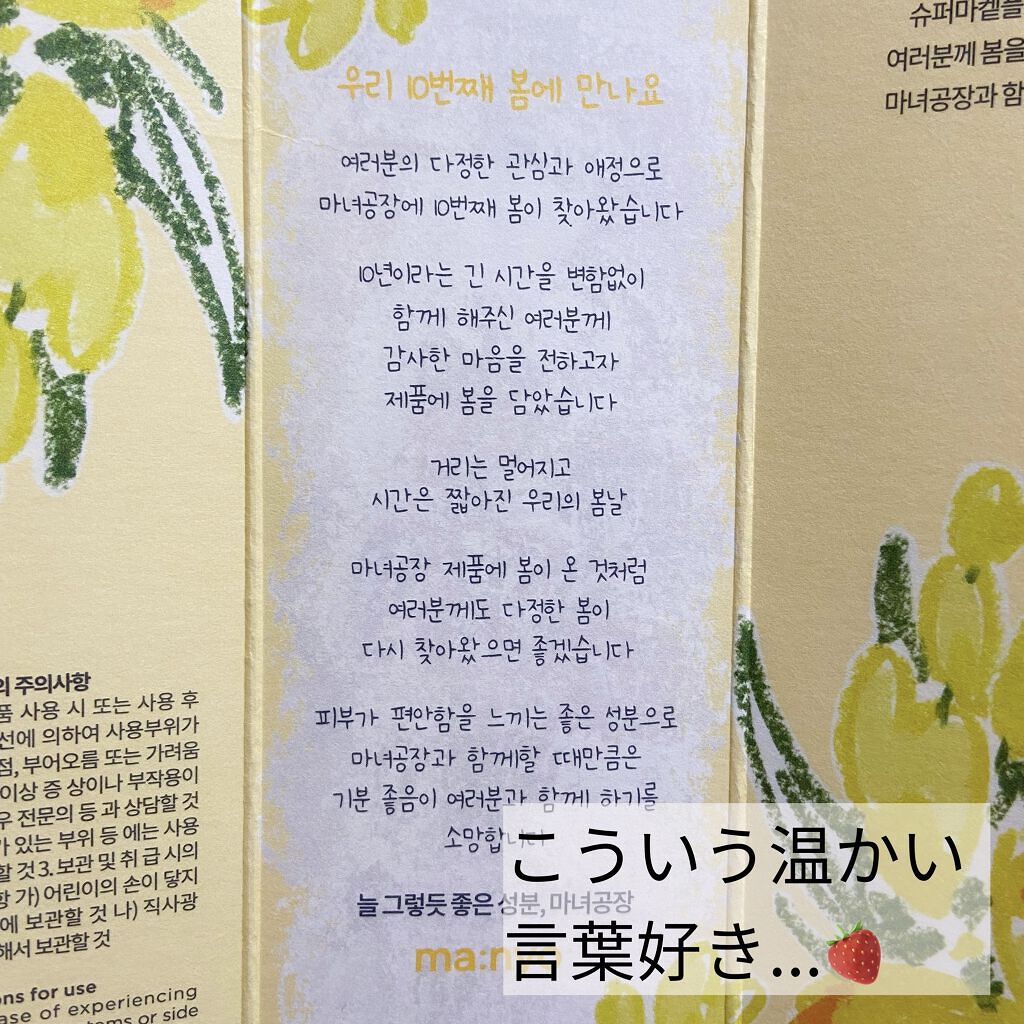 우리 10번째 봄에 만나요
여러분의 다정한 관심과 애정으로
마녀공장에 10번째 봄이 찾아왔습니다
10년이라는 긴 시간을 변함없이
함께 해주신 여러분께
감사한 마음을 전하고자
제품에 봄을 담았습니다
거리는 멀어지고
시간은 짧아진 우리의 봄날
마녀공장 제품에 봄이 온 것처럼
여러분께도 다정한 봄이
다시 찾아왔으면 좋겠습니다
피부가 편안함을 느끼는 좋은 성분으로
마녀공장과 함께할 때만큼은
기분 좋음이 여러분과 함께 하기를
소망합니다
늘 그렇듯 좋은 성분, 마녀공장
ma:n
의 주의사항
품 사용 시 또는 사용 후
선에 의하여 사용부위가
점, 부어오름 또는 가려움
이상 증 상이나 부작용이
우 전문의 등 과 상담할 것
가 있는 부위 등 에는 사용
할 것 3. 보관 및 취 급 시의
항 가) 어린이의 손이 닿지
에 보관할 것 나) 직사광
해서 보관할 것
ons for use
ase of experiencing
toms or side
슈퍼마켙을
여러분께 봄을
마녀공장과 함
こういう温かい
言葉好き...🍓